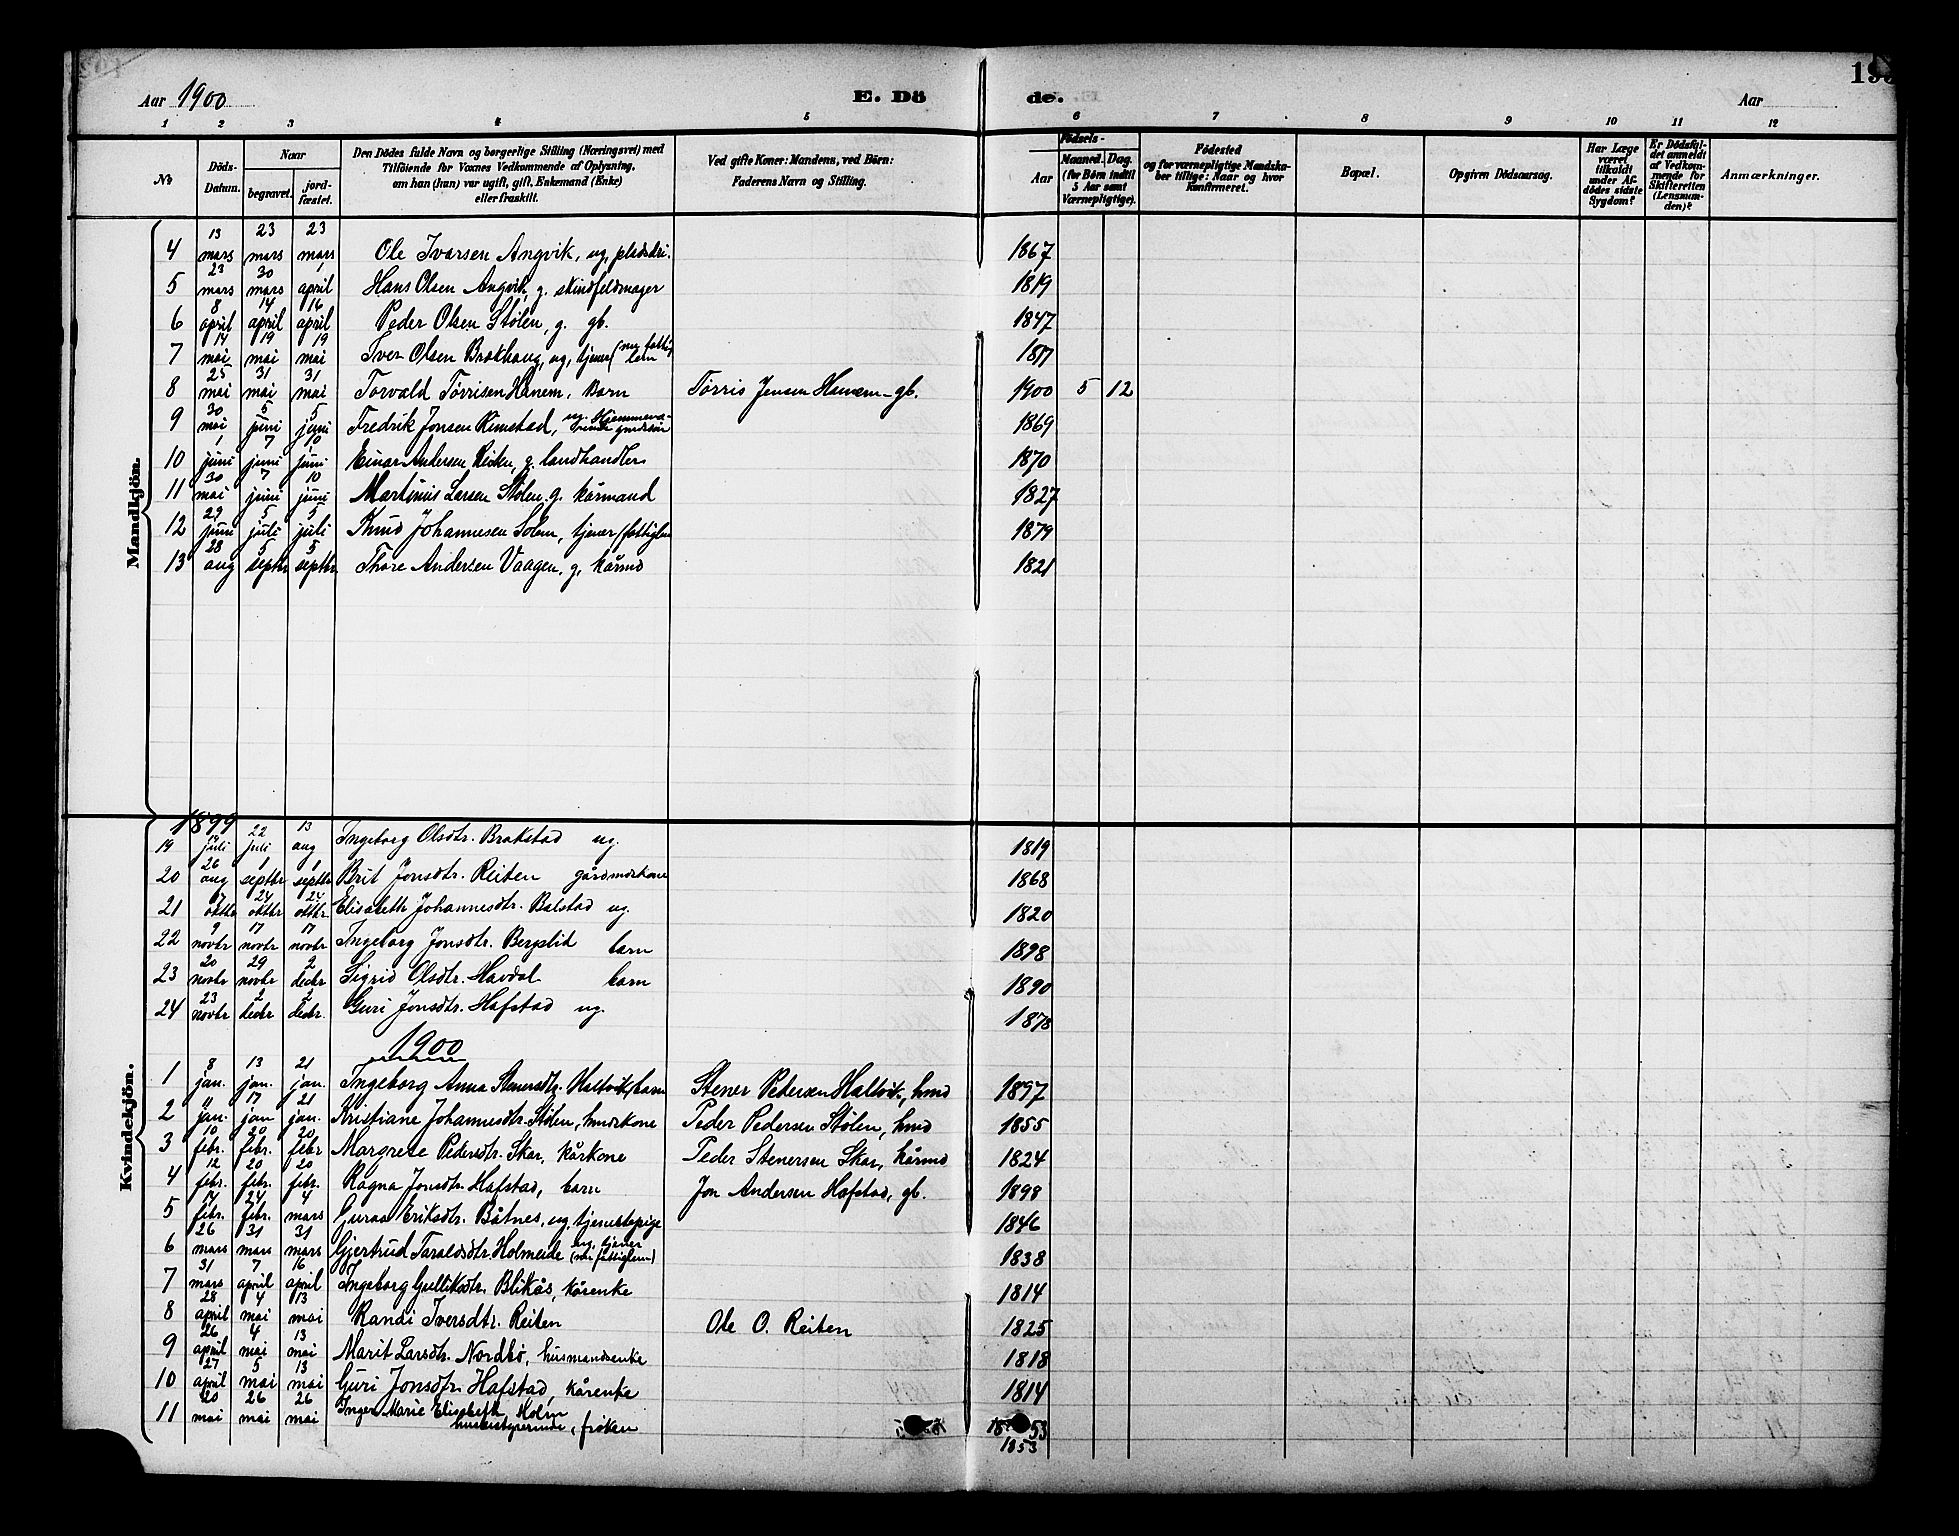 Aar 1900 E. Döde. Aar 193
1 2 3 4 5 6 7 8 9 10 11 12
No Döds-Datum. Naar begravet. jordfæstet. Den Dödes fulde Navn og borgerlige Stilling (Næringsvei) med Tilföiende for Voxnes Vedkommende af Oplysning, om han (hun) var ugift, gift, Enkemand (Enke) eller fraskilt. Ved gifte Koner: Mandens, ved Börn: Faderens Navn og Stilling. Födsels- Aar Maaned. Dag. (for Börn indtil 5 Aar samt Værnepligtige). Födested og for værnepligtige Mandskaber tillige: Naar og hvor konfirmeret. Bopæl. Opgiven Dödsaarsag. Har Læge været tilkaldt under Afdödes sidste Sygdom? Er Dödsfaldet anmeldt af Vedkommende for Skifteretten (Lensmanden)? Anmærkninger.
Mandkjön.
4 13 mars 23 mars 23 mars Ole Ivarsen Angvik, ug, pladsdri. 1867
5 23 mars 30 mars 1 april Hans Olsen Angvik, g. skindfeldmager 1819
6 8 april 14 april 16 april Peder Olsen Stølen, g. gb. 1847
7 14 mai 19 mai 19 mai Iver Olsen Brokhaug, ug, tjener 1817
8 25 mai 31 mai 31 mai Torvald Tørrisen Hanem, Barn Tørris Jensen Hanem gb. 1900 5 12
9 30 mai 5 juni 5 juni Fredrik Jonsen Rimstad, ug. 1869
10 1 juni 7 juni 10 juni Einar Andersen Reiten, g. landhandler 1870
11 30 mai 7 juni 10 juni Martinus Larsen Stølen g. kårmand 1827
12 29 juni 5 juli 5 juli Knud Johannesen Solem, tjener (fattiglem 1879
13 28 aug 5 septbr 5 septbr Thore Andersen Vaagen, g, kårmd 1821
Kvindekjön.
1899
19 14 juli 22 juli 13 aug Ingeborg Olsdtr. Brokstad ug. 1819
20 26 aug 1 septbr 1 septbr Brit Jonsdtr. Reiten gårdmdskone 1868
21 oktbr 24 oktbr 24 oktbr Elisabeth Johannesdtr. Bolstad ug. 1820
22 9 novbr 17 novbr 17 novbr Ingeborg Jonsdtr. Bergslid barn 1898
23 20 novbr 29 novbr 2 decbr Sigrid Olsdtr. Havdal barn 1890
24 23 novbr 2 decbr 2 decbr. Guri Jonsdtr. Hafstad ug. 1878
1900
1 8 jan. 13 jan. 21 jan. Ingeborg Anna Stenersdtr. Haltvik, barn Stener Pedersen Haltvik, hmd 1897
2 11 jan. 17 jan 21 jan. Kristiane Johannesdtr. Stølen, hmdskone Peder Pedersen Stølen, hmd 1855
3 10 febr. 20 febr. 20 febr Margrete Pedersdtr. Skar, kårkone Peder Stenersen Skar, kårmd 1824
4 12 febr. 20 febr. 20 febr. Ragna Jonsdtr. Hafstad, barn Jon Andersen Hafstad, gb. 1898
5 14 febr. 24 febr. 4 mars Guraa Eriksdtr. Båtnes, ug, tjenestepige 1846
6 26 mars 31 mars 31 mars Gjertrud Taraldsdtr. Holmeide ug. tjener 1838
7 31 mars 7 april 16 april Ingeborg Gulliksdtr. Blikås, kårenke 1814
8 28 april 4 mai 13 mai Randi Iversdtr. Reiten Ole O. Reiten 1825
9 26 april 4 mai 13 mai Marit Larsdtr. Nordbø, husmandsenke 1818
10 27 april 5 mai 13 mai Guri Jonsdtr. Hafstad, kårenke 1814
11 20 mai 26 mai 26 mai Inger Marie Elisabeth Holm husbestyrerinde, frøken 1853
1853